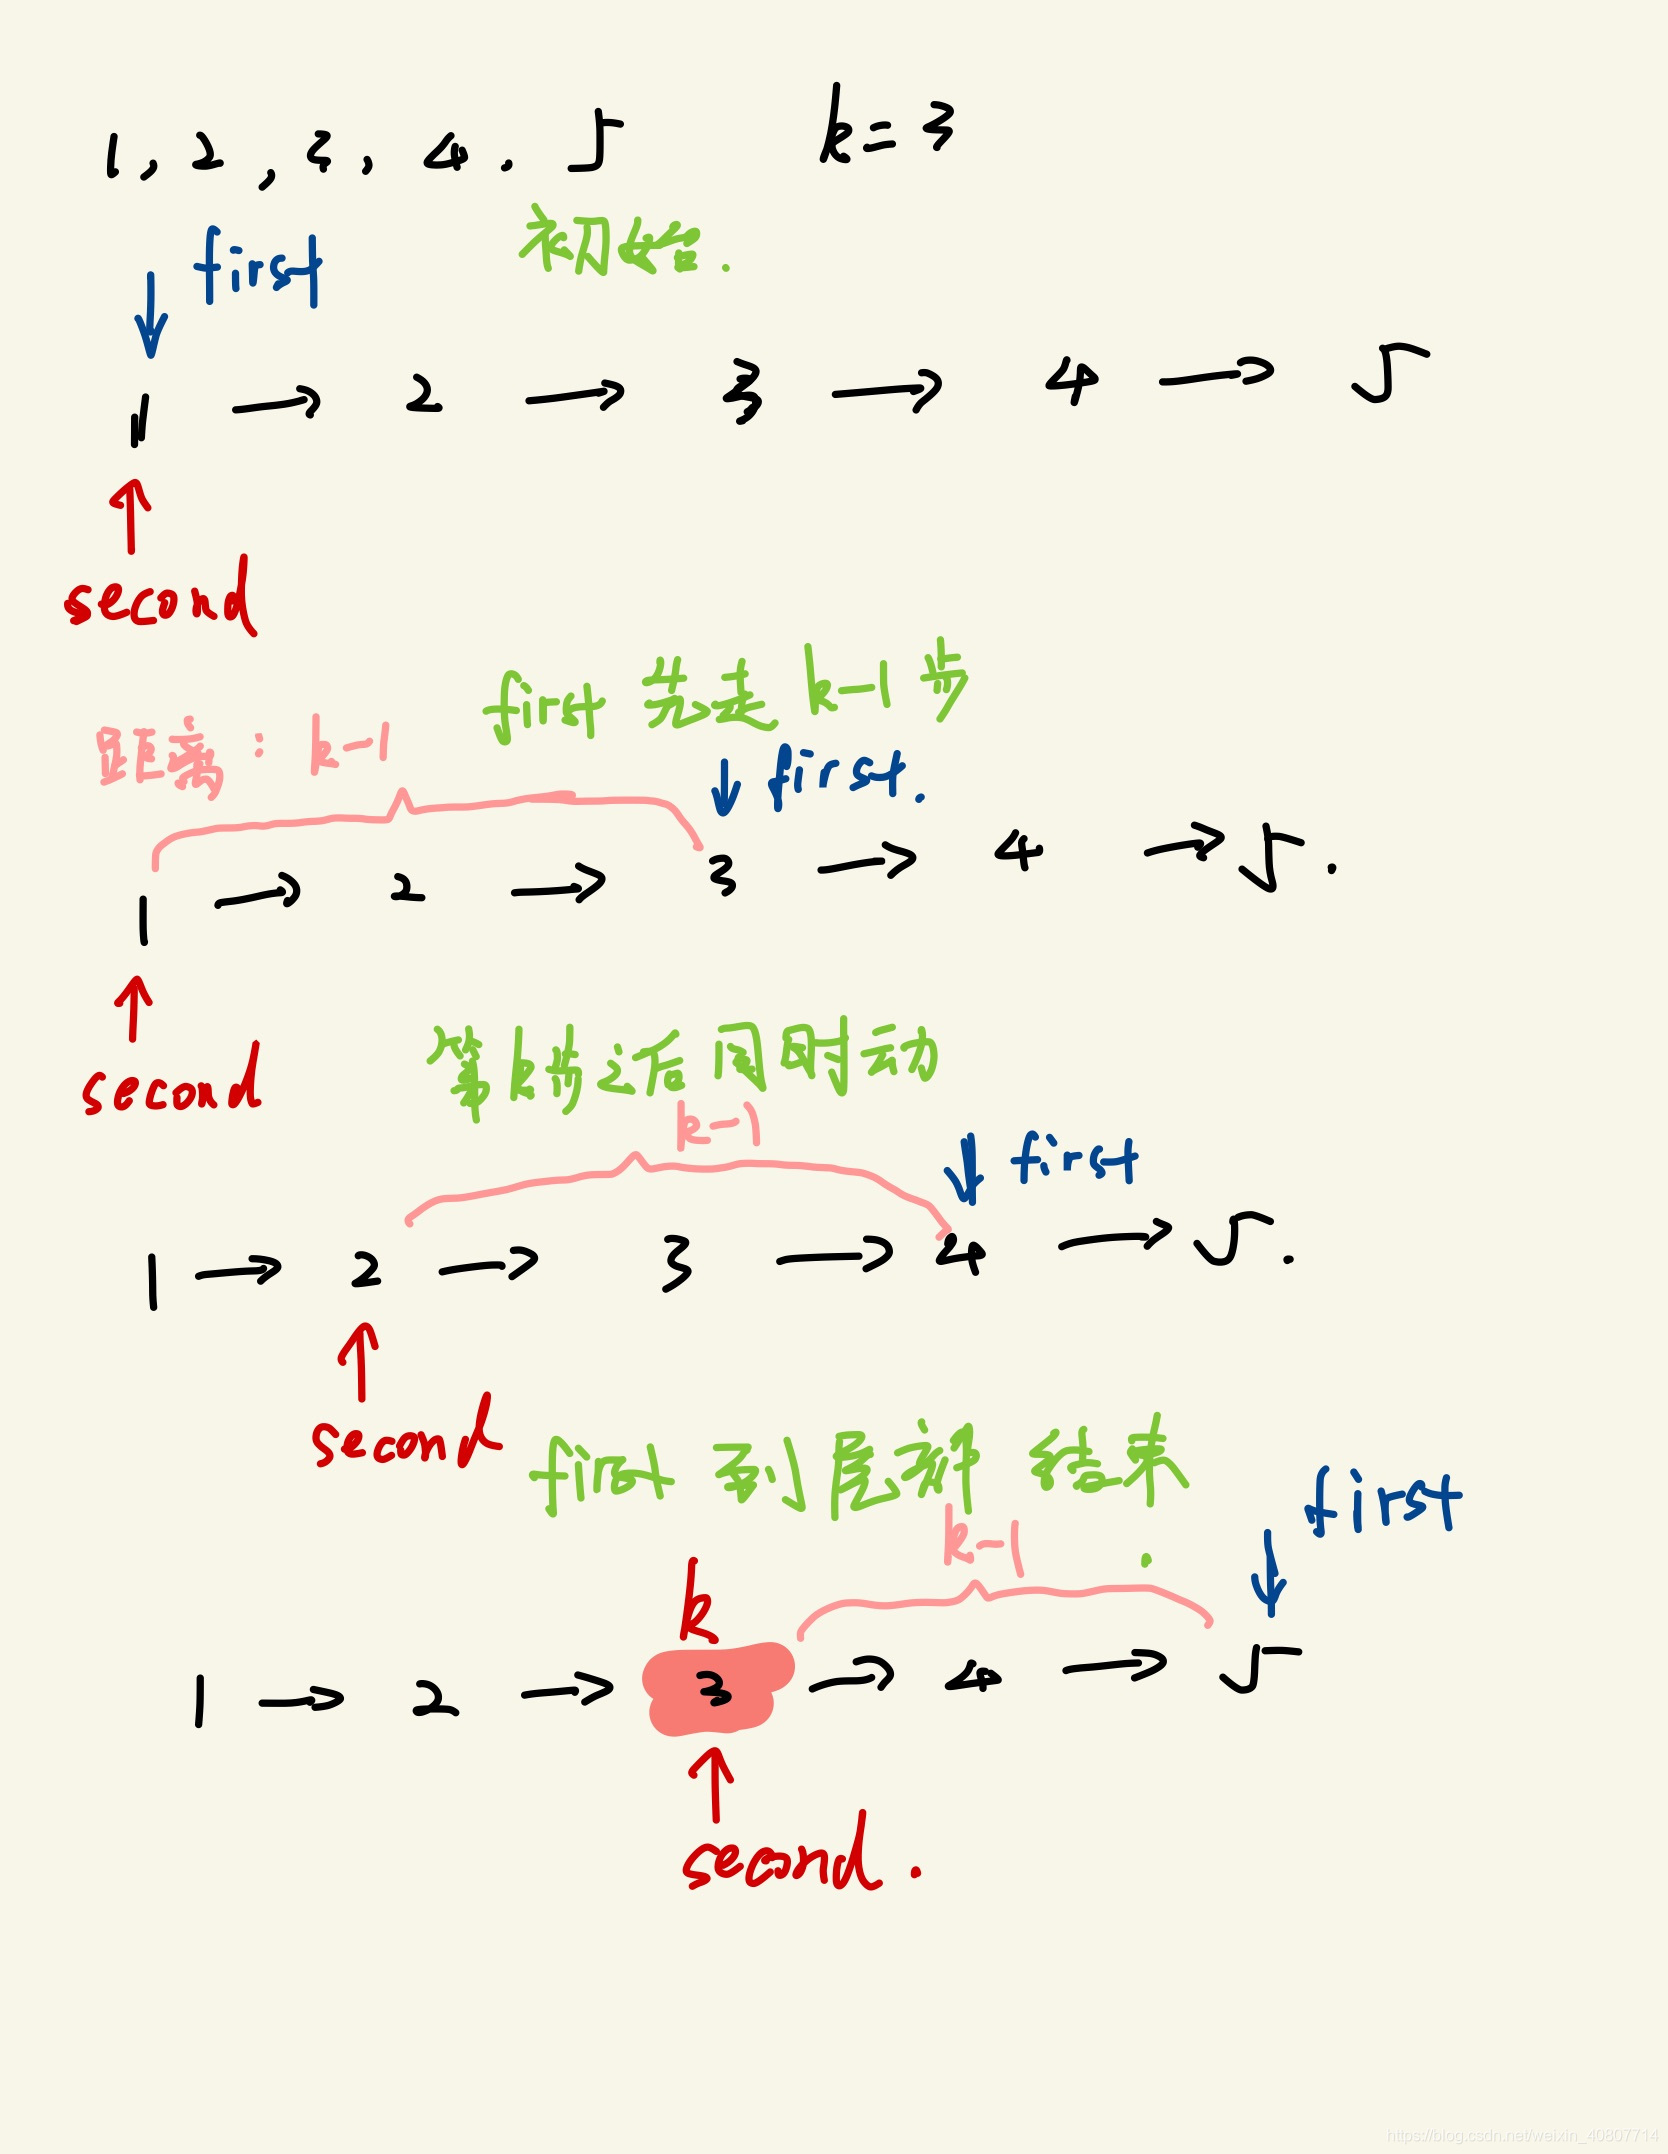 1, 2, 3, 4. 5 k=3
first 初始.
1 → 2 → 3 → 4 → 5
second
first 先走 k-1 步
距离: k-1 first.
1 → 2 → 3 → 4 → 5.
second
等k步之后同时动
k-1 first
1 → 2 → 3 → 4 → 5.
second
first 到尾部 结束.
first
k-1
k
1 → 2 → 3 → 4 → 5
second.
https://blog.csdn.net/weixin_40807714